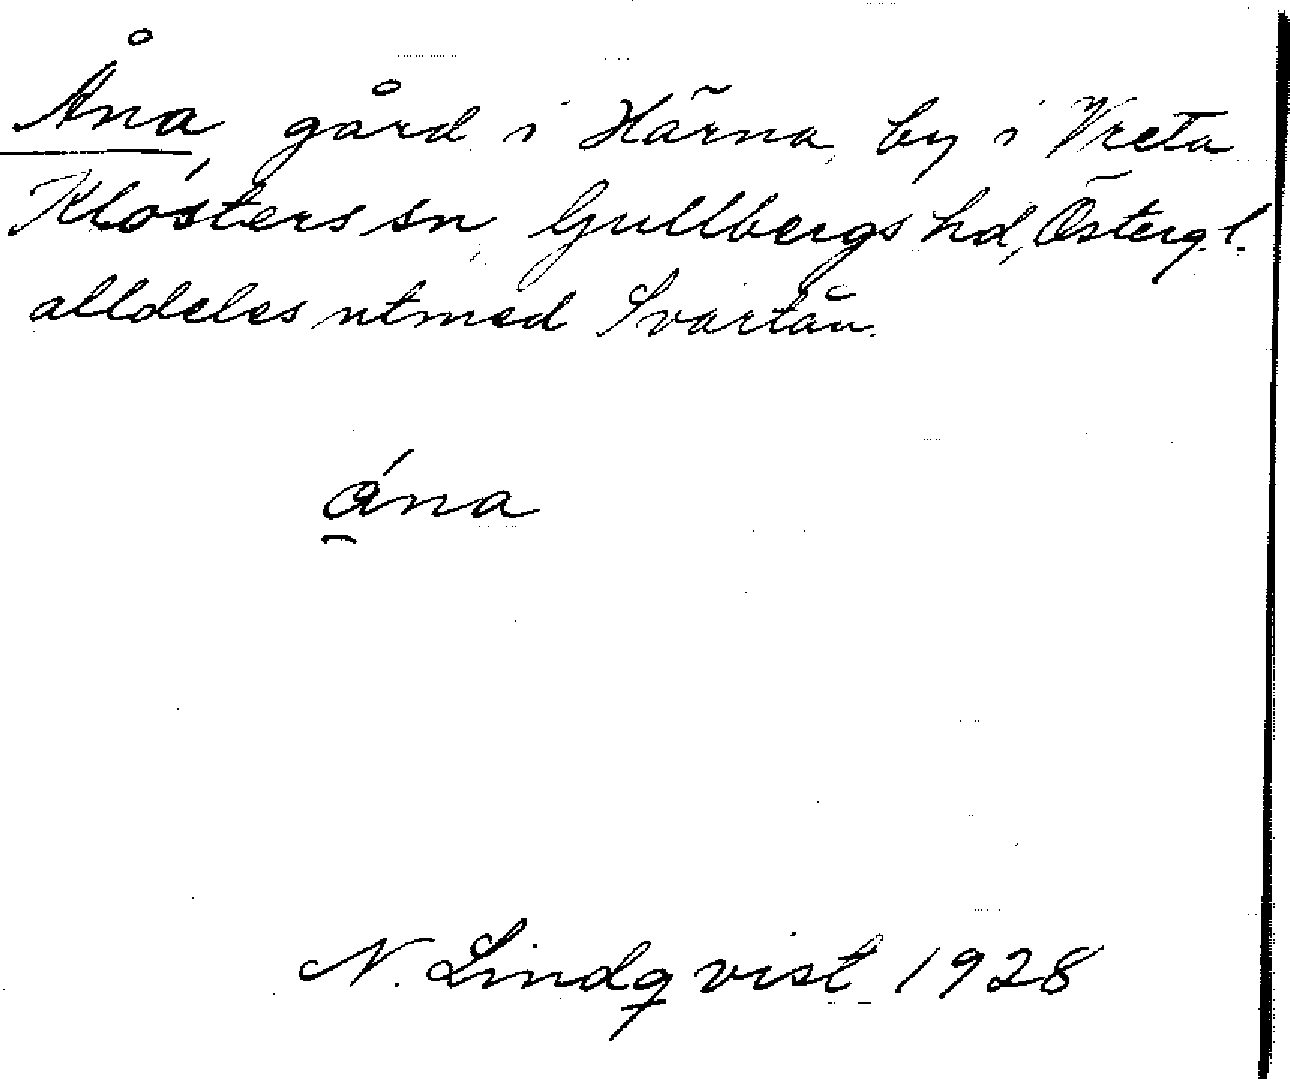 Åna, gård i Härna, by i Vreta
Klosters sn, Gullbergs hd, Östergl.
alldeles utmed Svartån.
ána
N. Lindqvist 1928